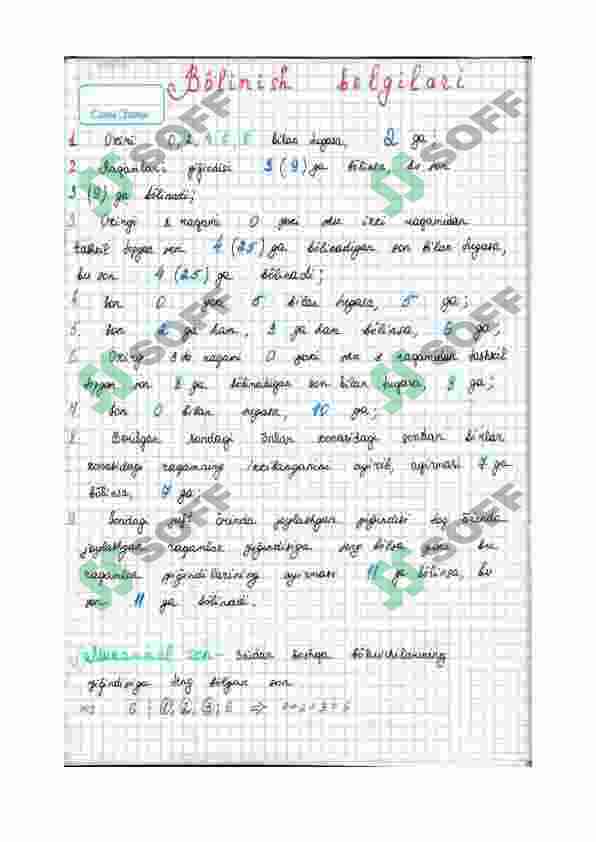 Bölinish belgilari
Сана /Дата
1. Oxiri 0, 2, 4, 6, 8 bilan tugasa, 2 ga;
2. Raqamlari yiğindisi 3 (9) ga bölinsa, bu son
3 (9) ga bölinadi;
3. Oxirgi 2 raqami 0 yoki shu ikki raqamidan
tashkil topgan son 4 (25) ga bölinadigan son bilan tugasa,
bu son 4 (25) ga bölinadi;
4. Son 0 yoki 5 bilan tugasa, 5 ga;
5. Son 2 ga ham, 3 ga ham bölinsa, 6 ga;
6. Oxirgi 3 ta raqami 0 yoki shu 3 raqamidan tashkil
topgan son 8 ga bölinadigan son bilan tugasa, 8 ga;
7. Son 0 bilan tugasa, 10 ga;
8. Berilgan sondagi önlar xonasidagi sondan birlar
xonasidagi raqamning ikkilanganini ayirib, ayirmasi 7 ga
bölinsa, 7 ga;
9. Sondagi juft örinda joylashgan yiğindisi toq örinda
joylashgan raqamlar yiğindisiga teng bölsa yoki bu
raqamlar yiğindilarining ayirmasi 11 ga bölinsa, bu
son 11 ga bölinadi.
Mukammal son - özidan boshqa böluvchilarining
yiğindisiga teng bölgan son.
6 : 1, 2, 3, 6 => 1+2+3=6
SOFF
SOFF
SOFF
SOFF
SOFF
SOFF